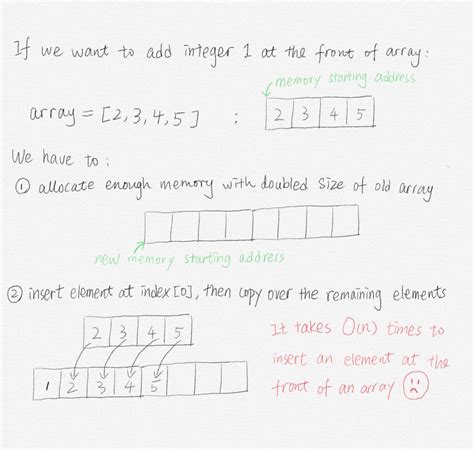 If we want to add integer 1 at the front of array:
memory starting address
array = [2,3,4,5] : 2 3 4 5
We have to:
① allocate enough memory with doubled size of old array
new memory starting address
② insert element at index[0], then copy over the remaining elements
2 3 4 5
1 2 3 4 5
It takes O(n) times to
insert an element at the
front of an array